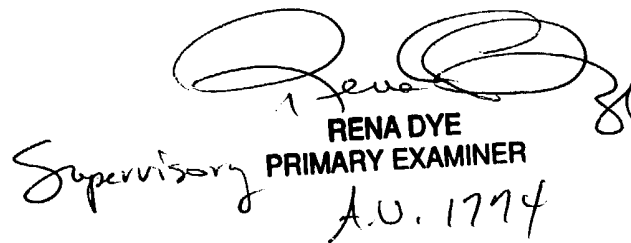 Rena
RENA DYE
Supervisory PRIMARY EXAMINER
A.U. 1774